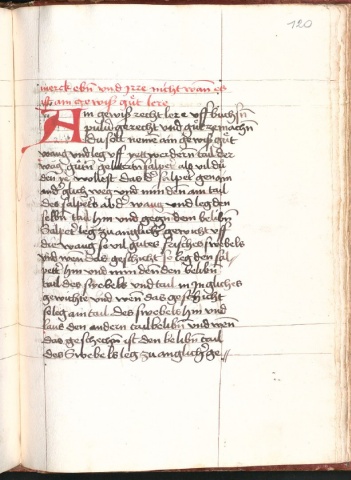 120
merck ebn̄ vnd irre nicht wan es
ist ain gewiß gůt lere
Ain gewiß recht lere vff buchsn̄
puluer gerecht vnd gůt zemachn̄
du solt neme ain gewiß gůt
waug vnd leg vff yettwedern tail der
wag gůten salpeter als vil du
den ze wollest das der salpet genom
glich weg vnd nim den ain tail
des salpeters ab der waug vnd leg den
selbn̄ tail hin vnd gegn dem belibn̄
salpeter leg zu anglicher gewicht vff
die waug so vil gutes frisches swebels
vnd wen das geschicht so leg den sal
petter hin vnd nim den den belibn̄
tail des swebels vnd tail in Inglichs
gewichte vnd wen das geschicht
so leg ain tail des swebels hin vnd
laus den andern tail belibn̄ vnd wen
das geschechn̄ ist den belibn̄ tail
des Swebels leg zu anglicher ge